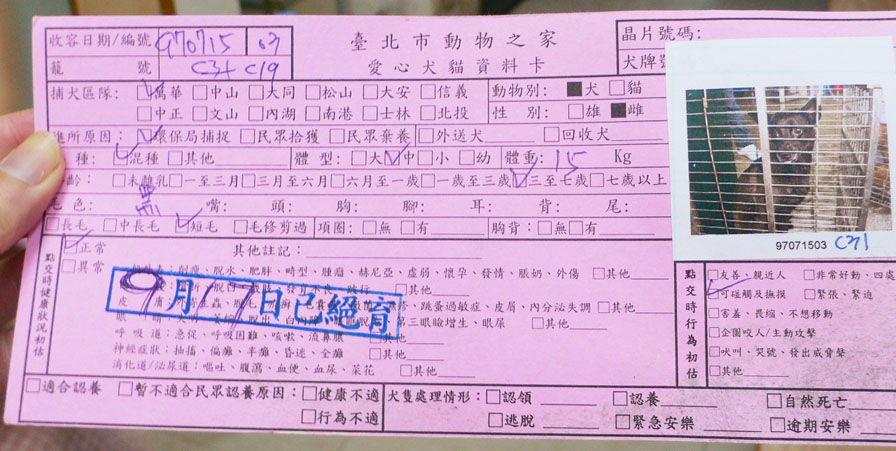 收容日期/編號 970715 03
臺北市動物之家
晶片號碼:
籠 號 C31 C19
愛心犬貓資料卡
犬牌號
捕犬區隊: ☑萬華 □中山 □大同 □松山 □大安 □信義 動物別: ■犬 □貓
□中正 □文山 □內湖 □南港 □士林 □北投 性 別: □雄 ■雌
進所原因: ☑環保局捕捉 □民眾拾獲 □民眾棄養 □外送犬 □回收犬
種: ☑混種 □其他 體 型: □大 ☑中 □小 □幼 體重: 15 Kg
齡: □未離乳 □一至三月 □三月至六月 □六月至一歲 □一歲至三歲 ☑三至七歲 □七歲以上
毛 色: 黑 嘴: 頭: 胸: 腳: 耳: 背: 尾:
□長毛 □中長毛 ☑短毛 □毛修剪過 項圈: □無 □有 胸背: □無 □有
97071503 C31
點交時健康狀況初估
☑正常 其他註記:
□異常
削瘦、脫水、肥胖、畸型、腫瘤、赫尼亞、虛弱、懷孕、發情、脹奶、外傷 □其他
跛行 □其他
皮 膚: 跳蚤過敏症、皮屑、內分泌失調 □其他
第三眼瞼增生、眼屎 □其他
9月17日已絕育
呼吸道: 急促、呼吸困難、咳嗽、流鼻膿 □其他
神經症狀: 抽搐、偏癱、半癱、昏迷、全癱 □其他
消化道/泌尿道: 嘔吐、腹瀉、血便、血尿、菜花 □其他
點交時行為初估
□友善、親近人 □非常好動、四處
☑可碰觸及撫摸 □緊張、緊迫
□害羞、畏縮、不想移動
□企圖咬人/主動攻擊
□吠叫、哭號、發出威脅聲
□其他
□適合認養 □暫不適合民眾認養原因: □健康不適 犬隻處理情形: □認領 □認養 □自然死亡
□行為不適 □逃脫 □緊急安樂 □逾期安樂